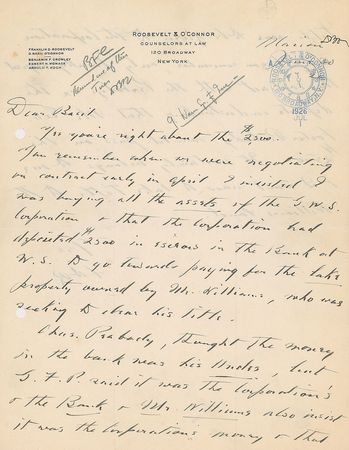 ROOSEVELT & O'CONNOR
COUNSELORS AT LAW
120 BROADWAY
NEW YORK
FRANKLIN D. ROOSEVELT
D. BASIL O'CONNOR
BENJAMIN F. CROWLEY
EARLE R. KOCH
Marion
1926
Remind me of this
Dear Basil:
Yes you're right about the $2500.
You remember when we were negotiating
our contract early in April I insisted I
was buying all the assets of the G.W.S.
Corporation & that the Corporation had
deposited $2500 in escrow in the Bank at
W.S. to go towards paying for the lake
property owned by Mr. Williams, who was
seeking to clear his title.
Chas. Peabody, thought the money
in the bank was his Uncles, but
G.F.P. said it was the Corporation's
& the Bank & Mr. Williams also insist
it was the Corporation's money & that